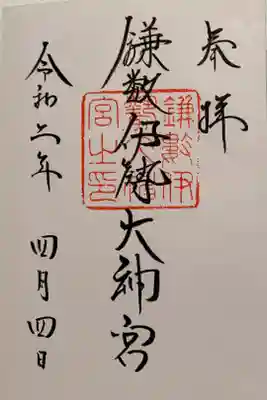 奉拝
鎌数伊勢大神宮
鎌數伊
宮之印
令和六年 四月四日